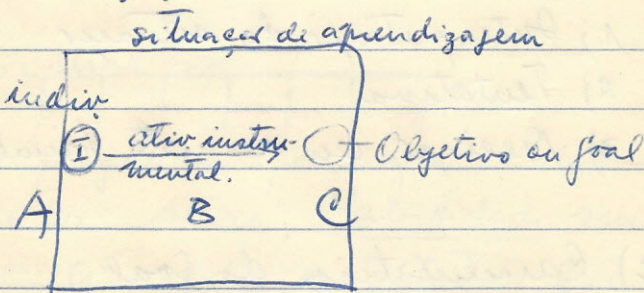 situação de aprendizagem
indiv.
I ativ. instru- Objetivo ou goal
mental.
A B C